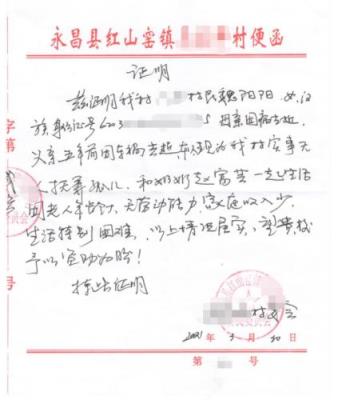 永昌县红山窑镇 村便函
证明
兹证明我村 村民魏阳阳，女，汉
族，身份证号6203 5 母亲因病去世
父亲五年前因车祸去世，本人现为我村实事无
人抚养孤儿，和奶奶赵富兰一起生活
因老人年龄大，无劳动能力，家庭收入少，
生活特别困难，以上情况属实，望贵校
予以资助为盼！
特此证明
村委会
2021年3月30日
第 号
字第
号